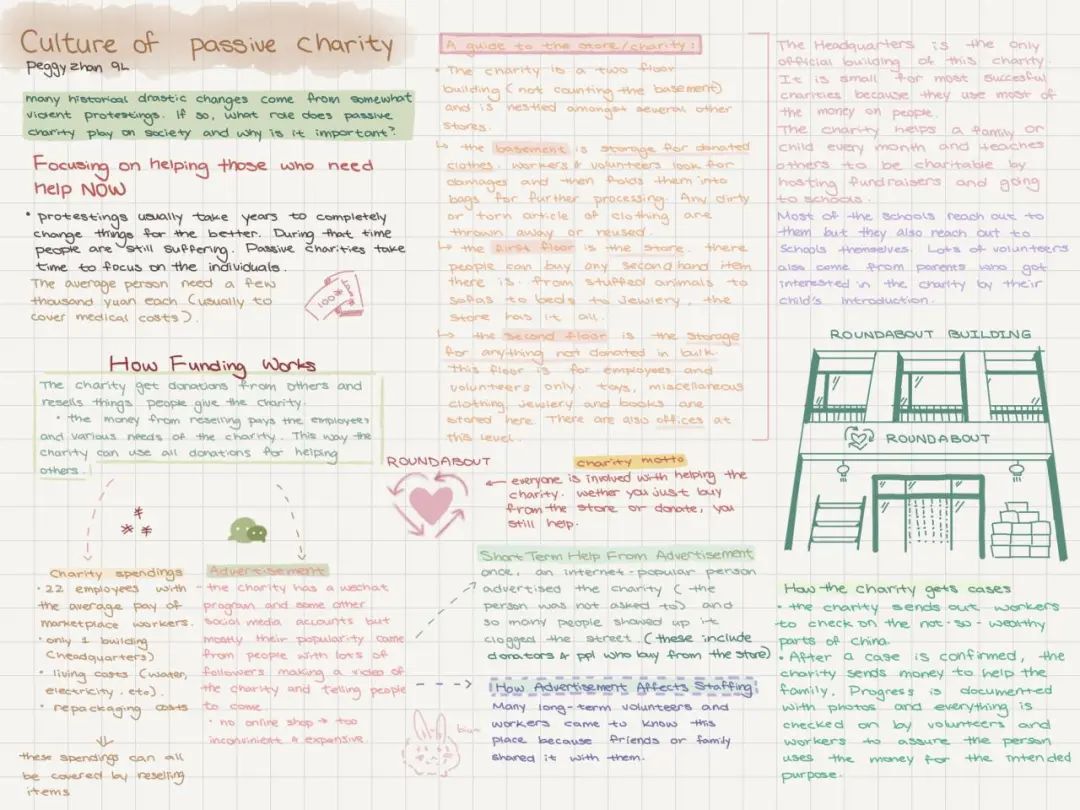 Culture of passive charity
Peggy zhan 9L
many historical drastic changes come from somewhat
violent protestings. If so, what role does passive
charity play on society and why is it important?
Focusing on helping those who need
help NOW
• protestings usually take years to completely
change things for the better. During that time
people are still suffering. Passive charities take
time to focus on the individuals.
The average person need a few
thousand yuan each (usually to
cover medical costs).
100
How Funding Works
The charity get donations from others and
resells things people give the charity.
• the money from reselling pays the employees
and various needs of the charity. This way the
charity can use all donations for helping
others.
Charity spendings
• 22 employees with
the average pay of
marketplace workers.
• only 1 building
(headquarters)
• living costs (water,
electricity, etc).
• repackaging costs
these spendings can all
be covered by reselling
items
Advertisement
- the charity has a wechat
program and some other
social media accounts but
mostly their popularity came
from people with lots of
followers making a video of
the charity and telling people
to come.
• no online shop → too
inconvinient & expensive
A guide to the store/charity:
• The charity is a two floor
building (not counting the basement)
and is nestled amongst several other
stores.
↳ the basement is storage for donated
clothes. workers & volunteers look for
damages and then folds them into
bags for further processing. Any dirty
or torn article of clothing are
thrown away or reused.
↳ the first floor is the store. there
people can buy any second hand item
there is. from stuffed animals to
sofas to beds to jewlery, the
store has it all.
↳ the second floor is the storage
for anything not donated in bulk.
This floor is for employees and
volunteers only. toys, miscellaneous
clothing, jewlery and books are
stored here. There are also offices at
this level.
ROUNDABOUT
charity motto
← everyone is involved with helping the
charity. wether you just buy
from the store or donate, you
still help.
Short Term Help From Advertisement
once, an internet-popular person
advertised the charity (the
person was not asked to) and
so many people showed up it
clogged the street. (these include
donators & ppl who buy from the store)
How Advertisement Affects Staffing
Many long-term volunteers and
workers came to know this
place because friends or family
shared it with them.
The Headquarters is the only
official building of this charity.
It is small for most succesful
charities because they use most of
the money on people.
The charity helps a family or
child every month and teaches
others to be charitable by
hosting fundraisers and going
to schools.
Most of the schools reach out to
them but they also reach out to
schools themselves. Lots of volunteers
also come from parents who got
interested in the charity by their
child's introduction.
ROUNDABOUT BUILDING
ROUNDABOUT
How the charity gets cases
• the charity sends out workers
to check on the not-so-wealthy
parts of China.
• After a case is confirmed, the
charity sends money to help the
family. Progress is documented
with photos and everything is
checked on by volunteers and
workers to assure the person
uses the money for the intended
purpose.